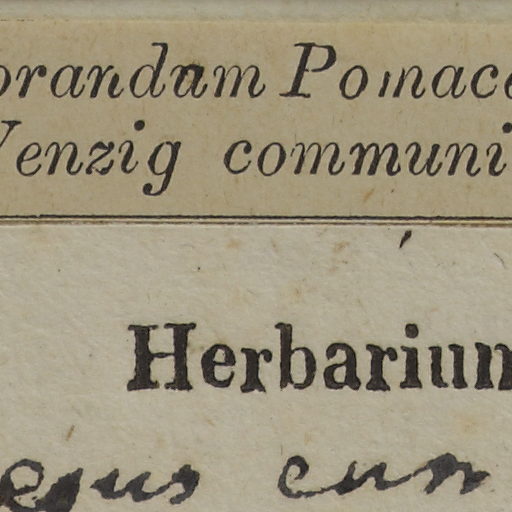 orandum Pomace
Venzig communi
Herbarium
egus cun